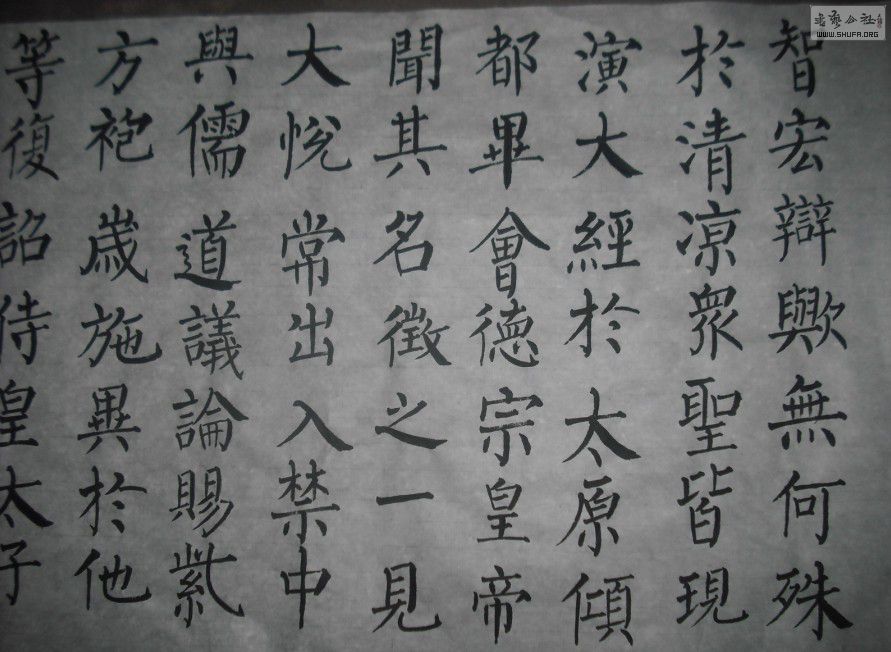 智宏辯歟無何殊
於清涼衆聖皆現
演大經於太原傾
都畢會德宗皇帝
聞其名徵之一見
大悅常出入禁中
與儒道議論賜紫
方袍歲施異於他
等復詔侍皇太子
書藝公社
WWW.SHUFA.ORG